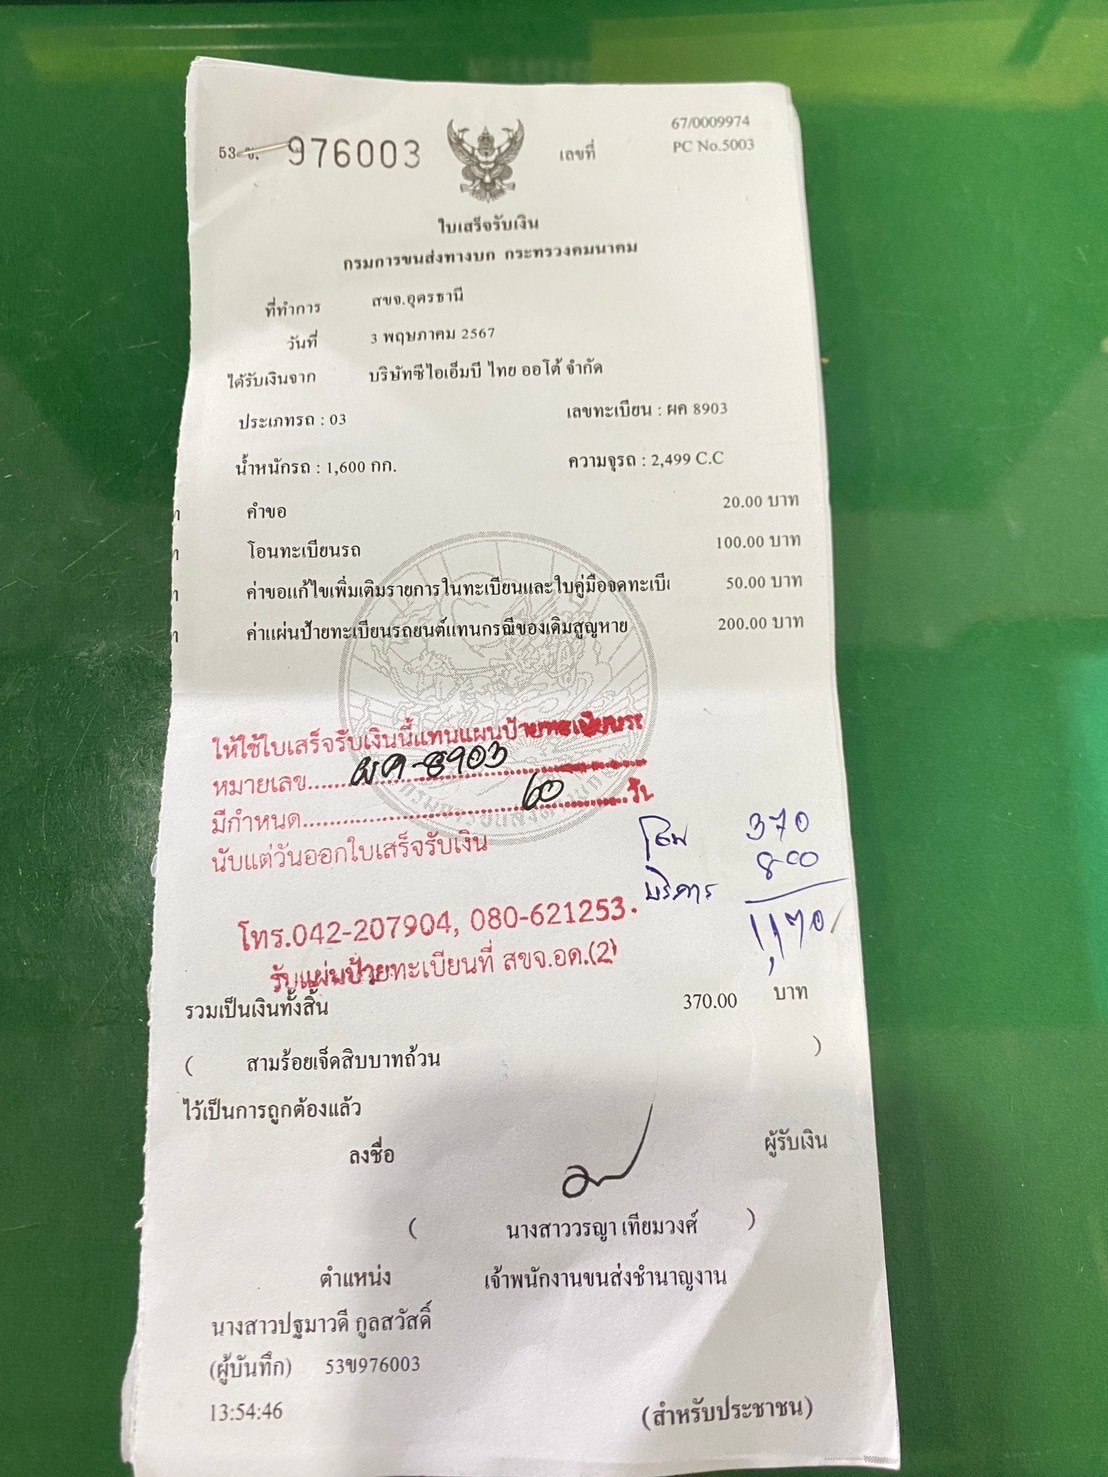 53 ข. 976003
เลขที่
67/0009974
PC No.5003
ใบเสร็จรับเงิน
กรมการขนส่งทางบก กระทรวงคมนาคม
ที่ทำการ สขจ.อุดรธานี
วันที่ 3 พฤษภาคม 2567
ได้รับเงินจาก บริษัทซีไอเอ็มบี ไทย ออโต้ จำกัด
ประเภทรถ : 03 เลขทะเบียน : ผค 8903
น้ำหนักรถ : 1,600 กก. ความจุรถ : 2,499 C.C
คำขอ 20.00 บาท
โอนทะเบียนรถ 100.00 บาท
ค่าขอแก้ไขเพิ่มเติมรายการในทะเบียนและใบคู่มือจดทะเบี 50.00 บาท
ค่าแผ่นป้ายทะเบียนรถยนต์แทนกรณีของเดิมสูญหาย 200.00 บาท
ให้ใช้ใบเสร็จรับเงินนี้แทนแผ่นป้ายทะเบียนรถ
หมายเลข ผค-8903
มีกำหนด 60 วัน
นับแต่วันออกใบเสร็จรับเงิน
โอน 370
บริการ 800
1,170/
โทร.042-207904, 080-621253.
รับแผ่นป้ายทะเบียนที่ สขจ.อด.(2)
รวมเป็นเงินทั้งสิ้น 370.00 บาท
( สามร้อยเจ็ดสิบบาทถ้วน )
ไว้เป็นการถูกต้องแล้ว
ลงชื่อ ผู้รับเงิน
( นางสาววรญา เทียมวงศ์ )
ตำแหน่ง เจ้าพนักงานขนส่งชำนาญงาน
นางสาวปฐมาวดี กูลสวัสดิ์
(ผู้บันทึก) 53ข976003
13:54:46
(สำหรับประชาชน)